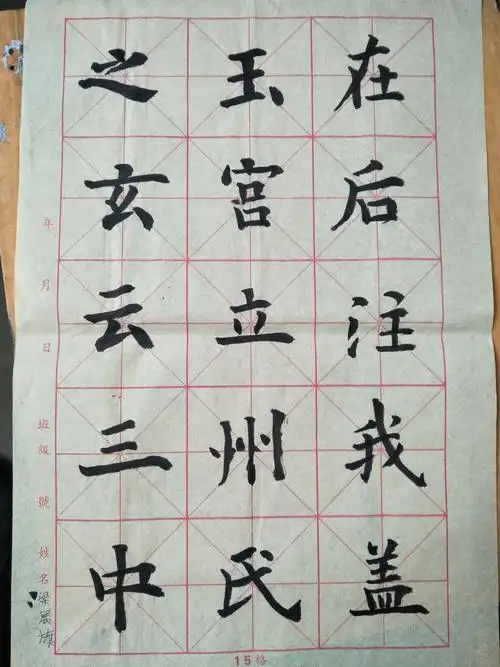 在后注我盖
玉宫立州氏
之玄云三中
年月日
班級 號
姓名 梁展旗
15格